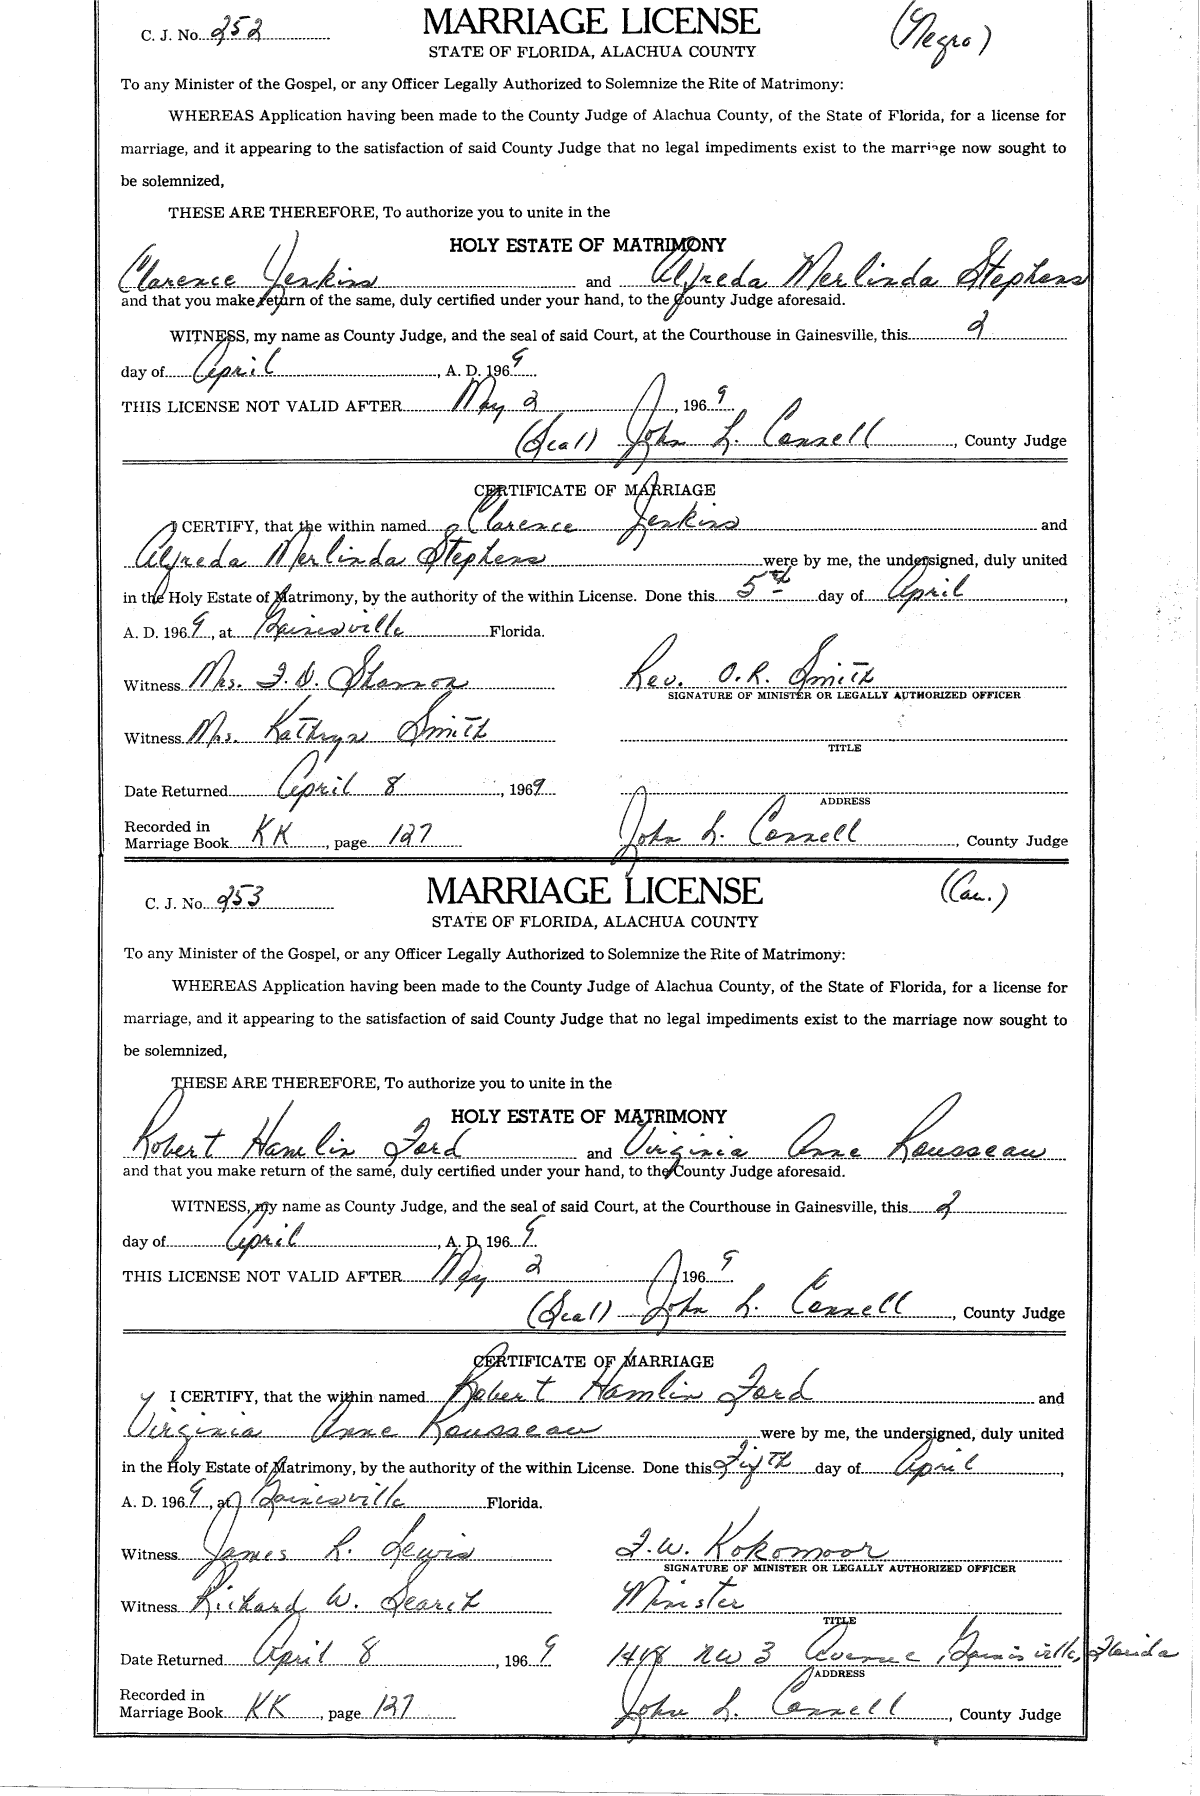 C. J. No. 252 MARRIAGE LICENSE (Negro)
STATE OF FLORIDA, ALACHUA COUNTY
To any Minister of the Gospel, or any Officer Legally Authorized to Solemnize the Rite of Matrimony:
WHEREAS Application having been made to the County Judge of Alachua County, of the State of Florida, for a license for
marriage, and it appearing to the satisfaction of said County Judge that no legal impediments exist to the marriage now sought to
be solemnized,
THESE ARE THEREFORE, To authorize you to unite in the
HOLY ESTATE OF MATRIMONY
Clarence Jenkins and Alfreda Merlinda Stephens
and that you make return of the same, duly certified under your hand, to the County Judge aforesaid.
WITNESS, my name as County Judge, and the seal of said Court, at the Courthouse in Gainesville, this 2
day of April, A. D. 1969
THIS LICENSE NOT VALID AFTER May 2, 1969
(Seal) John L. Connell, County Judge
CERTIFICATE OF MARRIAGE
I CERTIFY, that the within named Clarence Jenkins and
Alfreda Merlinda Stephens were by me, the undersigned, duly united
in the Holy Estate of Matrimony, by the authority of the within License. Done this 5th day of April,
A. D. 1969, at Gainesville Florida.
Witness Mrs. F. D. Shannon Rev. O. R. Smith
SIGNATURE OF MINISTER OR LEGALLY AUTHORIZED OFFICER
Witness Mrs. Kathryn Smith
TITLE
Date Returned April 8, 1969
ADDRESS
Recorded in
Marriage Book KK, page 127 John L. Connell, County Judge
C. J. No. 253 MARRIAGE LICENSE (Cau.)
STATE OF FLORIDA, ALACHUA COUNTY
To any Minister of the Gospel, or any Officer Legally Authorized to Solemnize the Rite of Matrimony:
WHEREAS Application having been made to the County Judge of Alachua County, of the State of Florida, for a license for
marriage, and it appearing to the satisfaction of said County Judge that no legal impediments exist to the marriage now sought to
be solemnized,
THESE ARE THEREFORE, To authorize you to unite in the
HOLY ESTATE OF MATRIMONY
Robert Hamlin Ford and Virginia Anne Rousseau
and that you make return of the same, duly certified under your hand, to the County Judge aforesaid.
WITNESS, my name as County Judge, and the seal of said Court, at the Courthouse in Gainesville, this 2
day of April, A. D. 1969
THIS LICENSE NOT VALID AFTER May 2, 1969
(Seal) John L. Connell, County Judge
CERTIFICATE OF MARRIAGE
I CERTIFY, that the within named Robert Hamlin Ford and
Virginia Anne Rousseau were by me, the undersigned, duly united
in the Holy Estate of Matrimony, by the authority of the within License. Done this Fifth day of April,
A. D. 1969, at Gainesville Florida.
Witness James R. Lewis F. W. Kokomoor
SIGNATURE OF MINISTER OR LEGALLY AUTHORIZED OFFICER
Witness Richard W. Search Minister
TITLE
Date Returned April 8, 1969 1418 NW 3 Avenue, Gainesville, Florida
ADDRESS
Recorded in
Marriage Book KK, page 127 John L. Connell, County Judge